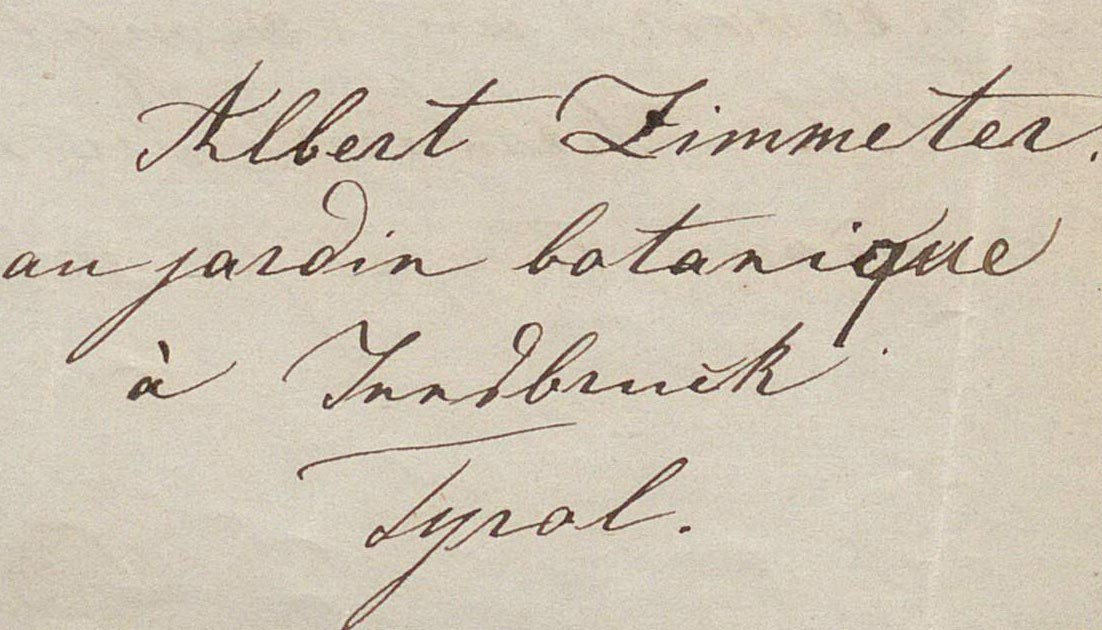 Albert Zimmeter.
au jardin botanique
à Innsbruck
Tyrol.